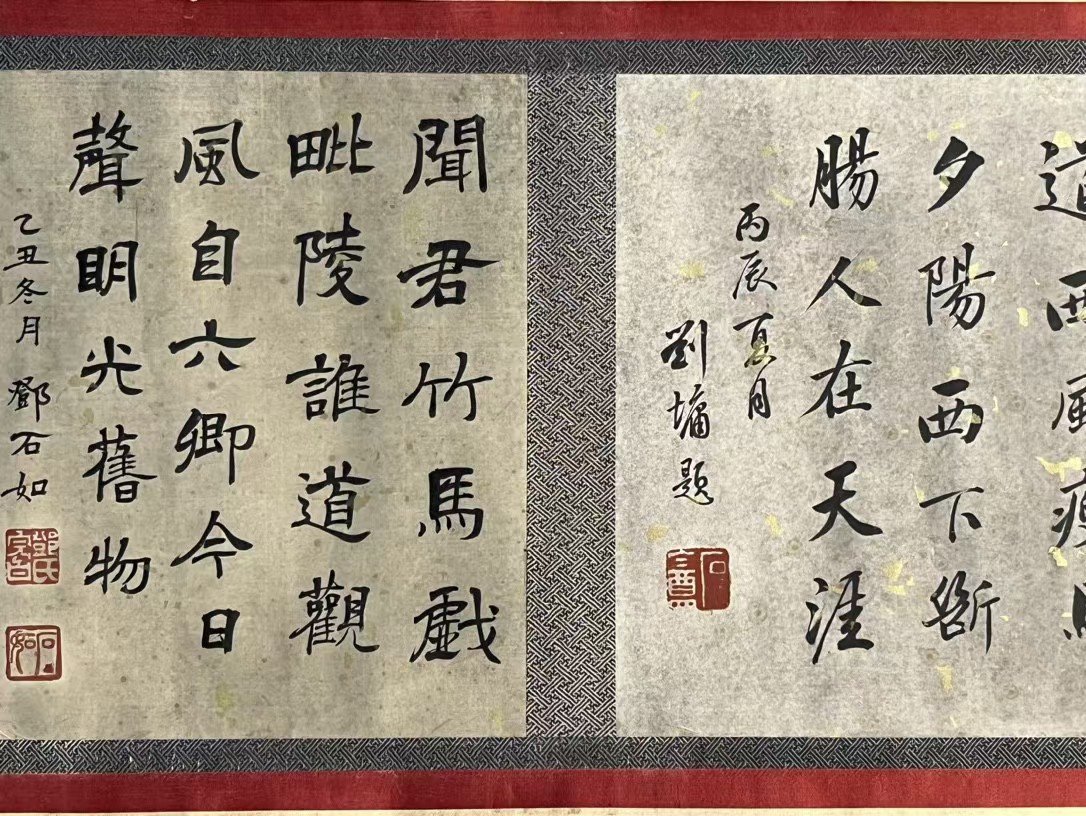 道西風瘦
夕陽西下斷
腸人在天涯
丙辰夏月
劉墉題
聞君竹馬戲
毗陵誰道觀
風自六卿今日
聲明光舊物
乙丑冬月 鄧石如
鄧氏完白
石如